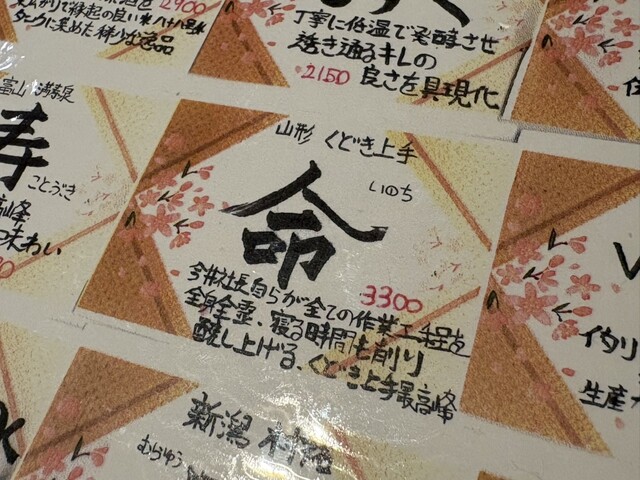 2900
で縁起の良い米八十八号を
タンクに集めた稀少な逸品
丁寧に低温で発酵させ
透き通るキレの
2150 良さを具現化
富山 満寿泉
寿
ことぶき
高峰
味わい
山形 くどき上手
いのち
命
3300
今井社長自らが全ての作業工程を
全身全霊、寝る時間も削り
醸し上げる、くどき上手最高峰
イタリ
生産
新潟 村祐
むらゆう